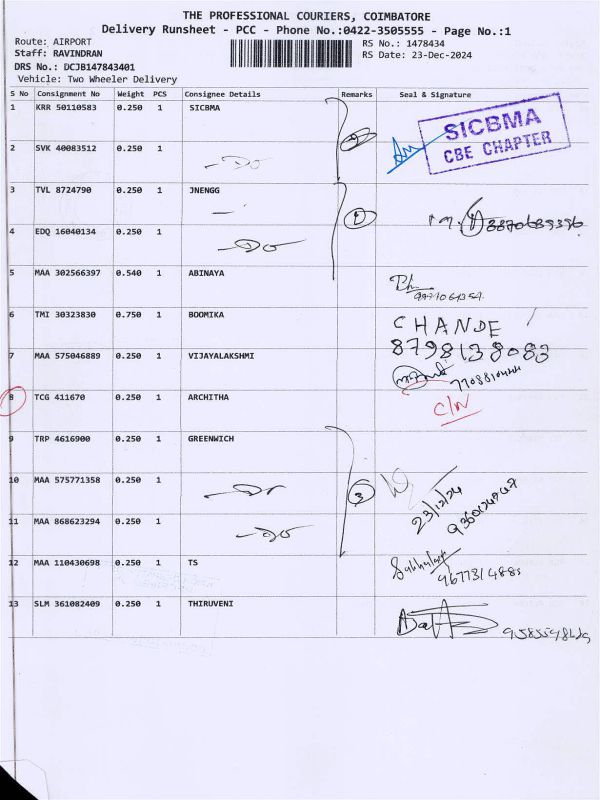 THE PROFESSIONAL COURIERS, COIMBATORE
Delivery Runsheet - PCC - Phone No.:0422-3505555 - Page No.:1
Route: AIRPORT
Staff: RAVINDRAN
DRS No.: DCJB147843401
Vehicle: Two Wheeler Delivery
RS No.: 1478434
RS Date: 23-Dec-2024
S No Consignment No Weight PCS Consignee Details Remarks Seal & Signature
1 KRR 50110583 0.250 1 SICBMA
SICBMA
CBE CHAPTER
2 SVK 40083512 0.250 1
-Do
2
3 TVL 8724790 0.250 1 JNENGG
4 EDQ 16040134 0.250 1
-Do
5 MAA 302566397 0.540 1 ABINAYA
6 TMI 30323830 0.750 1 BOOMIKA
CHANDE
8798138083
7 MAA 575046889 0.250 1 VIJAYALAKSHMI
8 TCG 411670 0.250 1 ARCHITHA
C/N
9 TRP 4616900 0.250 1 GREENWICH
10 MAA 575771358 0.250 1
-Do
3
23/12/24
11 MAA 868623294 0.250 1
-Do
12 MAA 110430698 0.250 1 TS
13 SLM 361082409 0.250 1 THIRUVENI